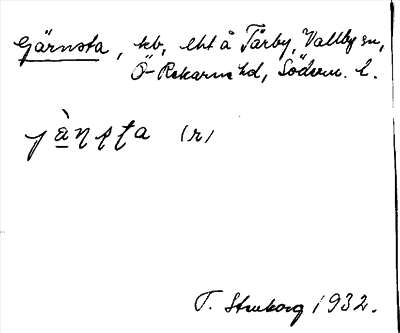 Gärnsta, kb, lht å Tärby, Vallby sn,
Ö-Rekarne hd, Söderm. l.
jà̱ɳʂʈa (r)
T. Strukorg 1932.